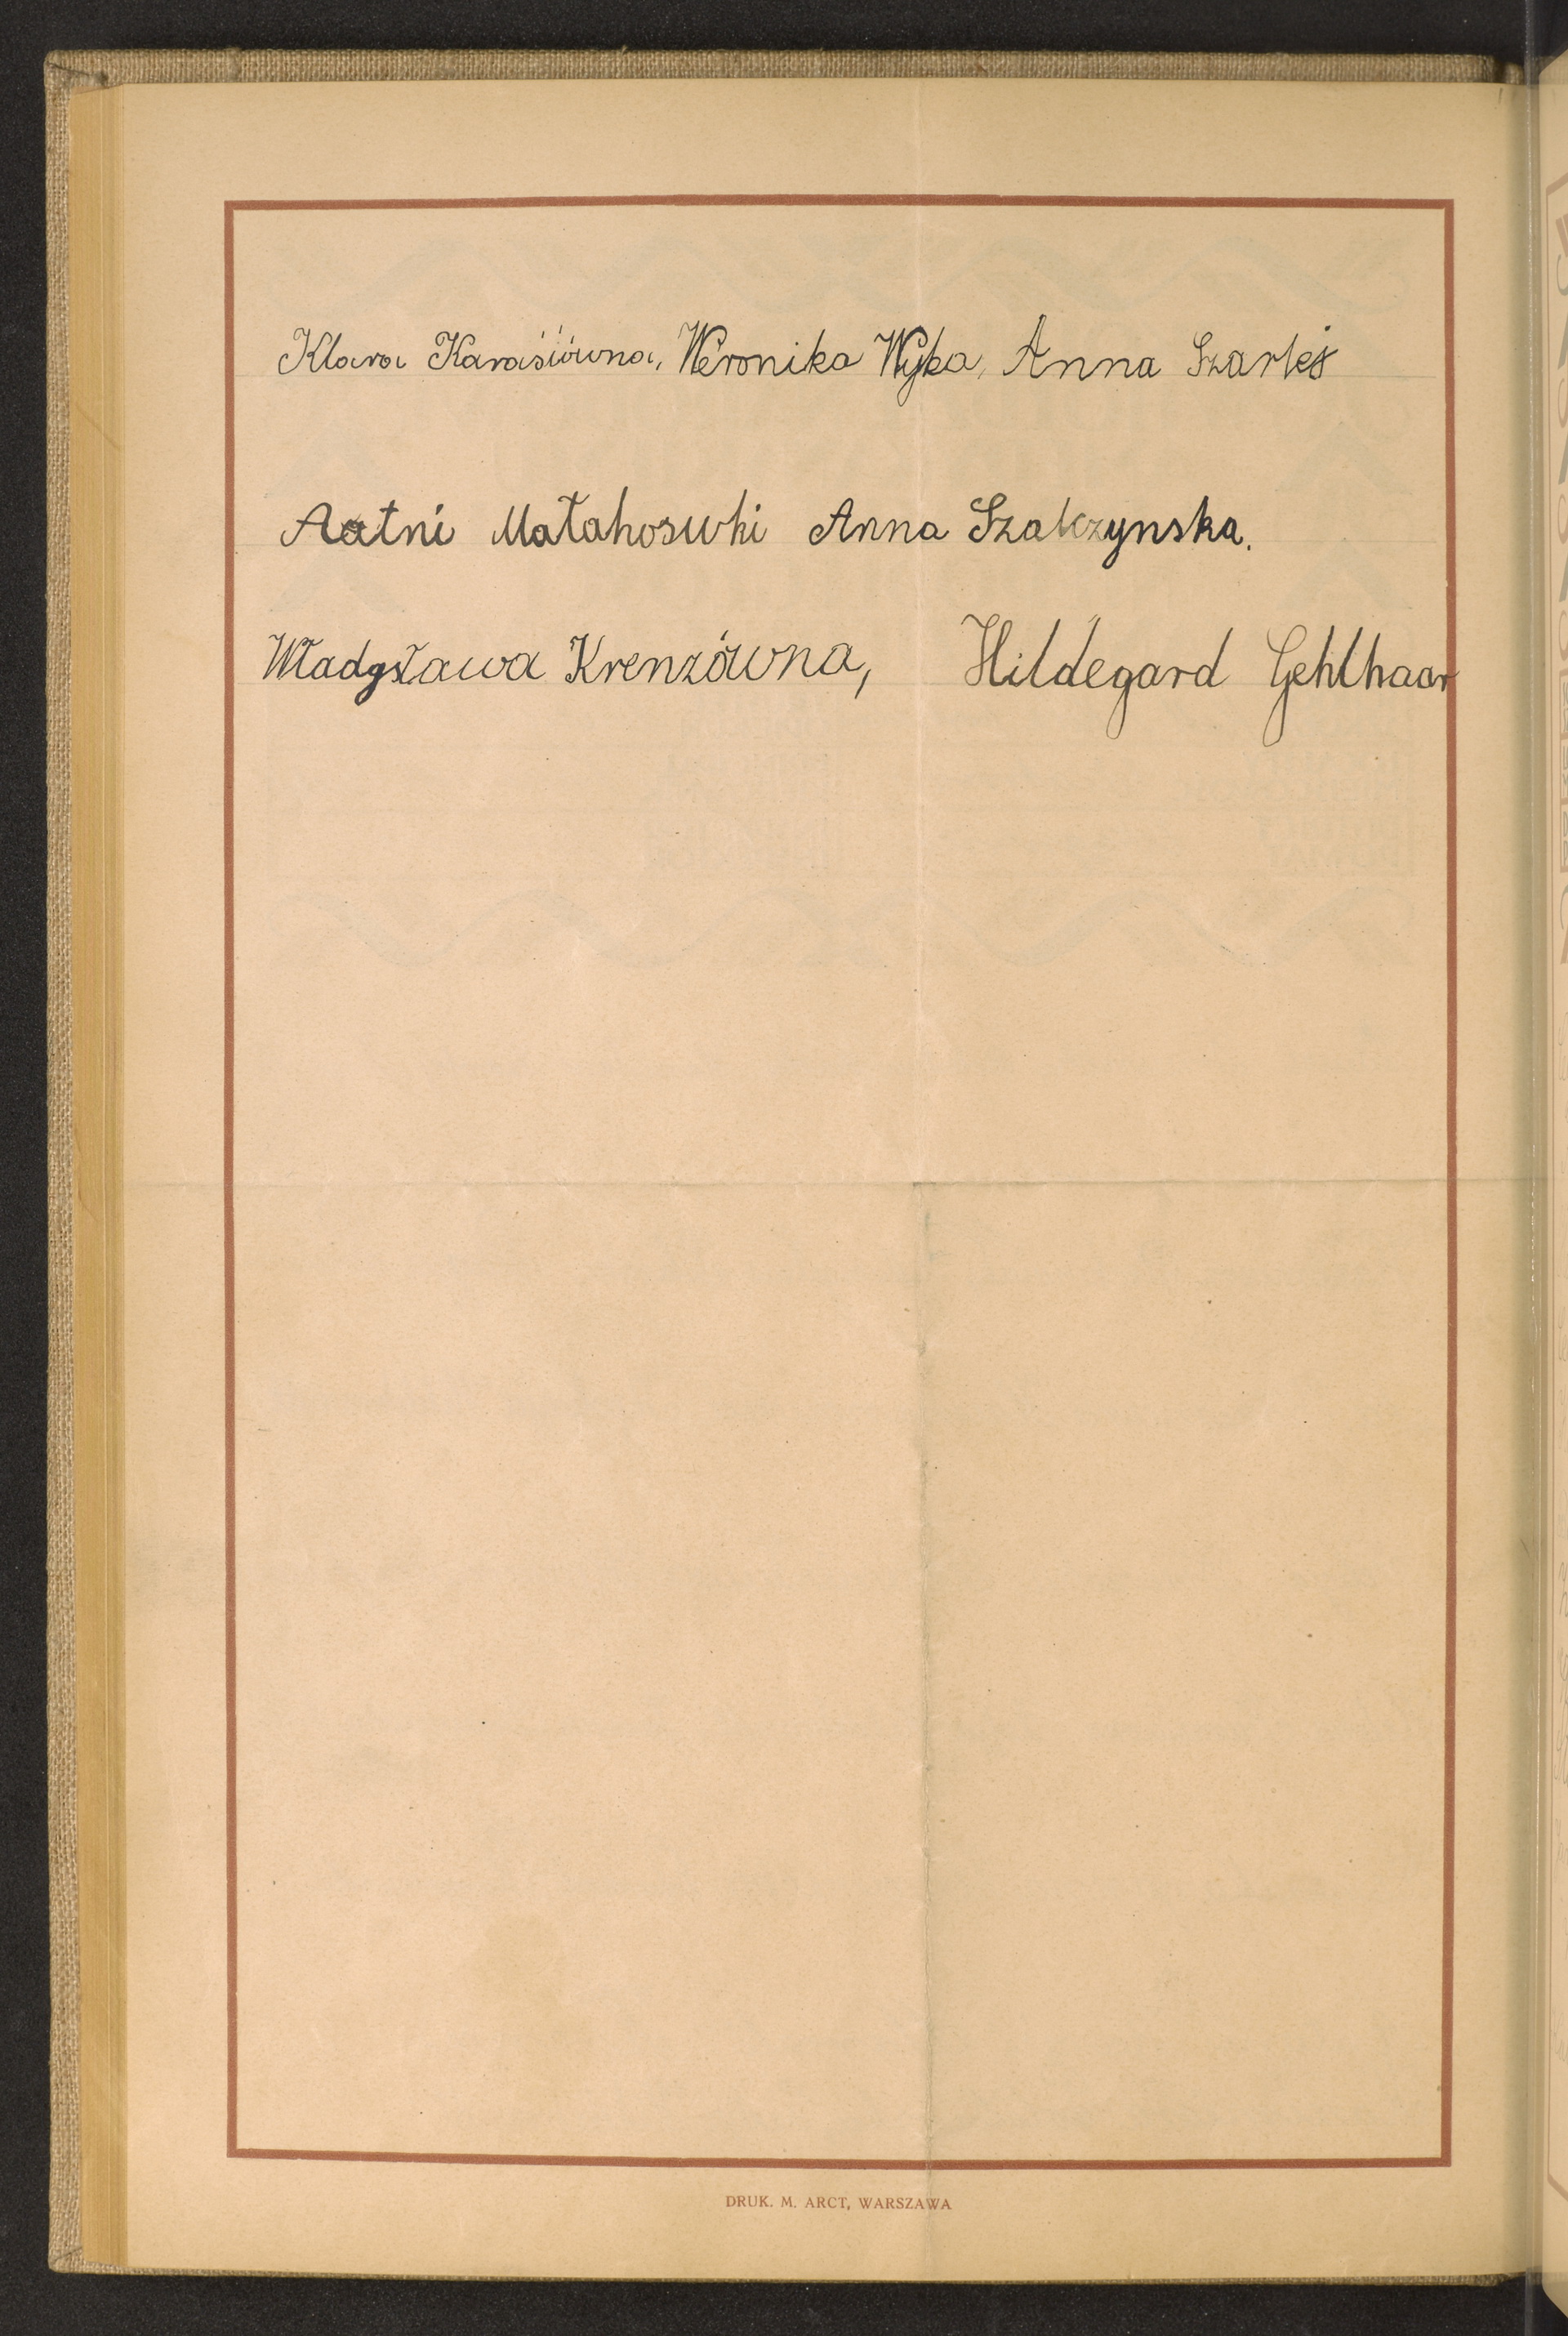 Klara Karaśiówna, Weronika Wyka, Anna
Matahoswki Anna Szalczynska.
Władysława Krenzówna, Hildegard Gehlhaar
DRUK. M. ARCT, WARSZAWA